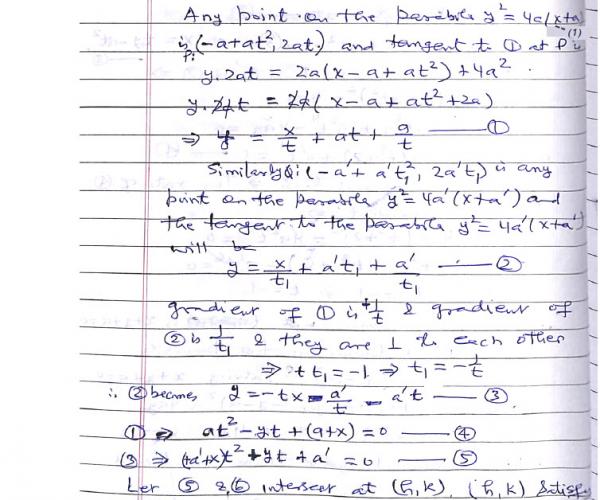 Any point on the Parabola y² = 4a(x+a) —(1)
is P: (-a+at², 2at) and tangent to ① at P is
y.2at = 2a(x-a+at²)+4a².
y.2at = 2a(x-a+at²+2a)
⇒ y = x/t + at + a/t —— ①
Similarly Q: (-a'+a't₁², 2a't₁) is any
point on the Parabola y² = 4a'(x+a') and
the tangent to the Parabola y² = 4a'(x+a')
will be
y = x/t₁ + a't₁ + a'/t₁ —— ②
gradient of ① is +1/t & gradient of
② is 1/t₁ & they are ⊥ to each other
⇒ t t₁ = -1 ⇒ t₁ = -1/t
∴ ② becomes y = -tx - a'/t - a't —— ③
① ⇒ at² - yt + (a+x) = 0 —— ④
③ ⇒ (a'+x)t² + yt + a' = 0 —— ⑤
Let ⑤ & ⑥ intersect at (h,k). (h,k) satisf